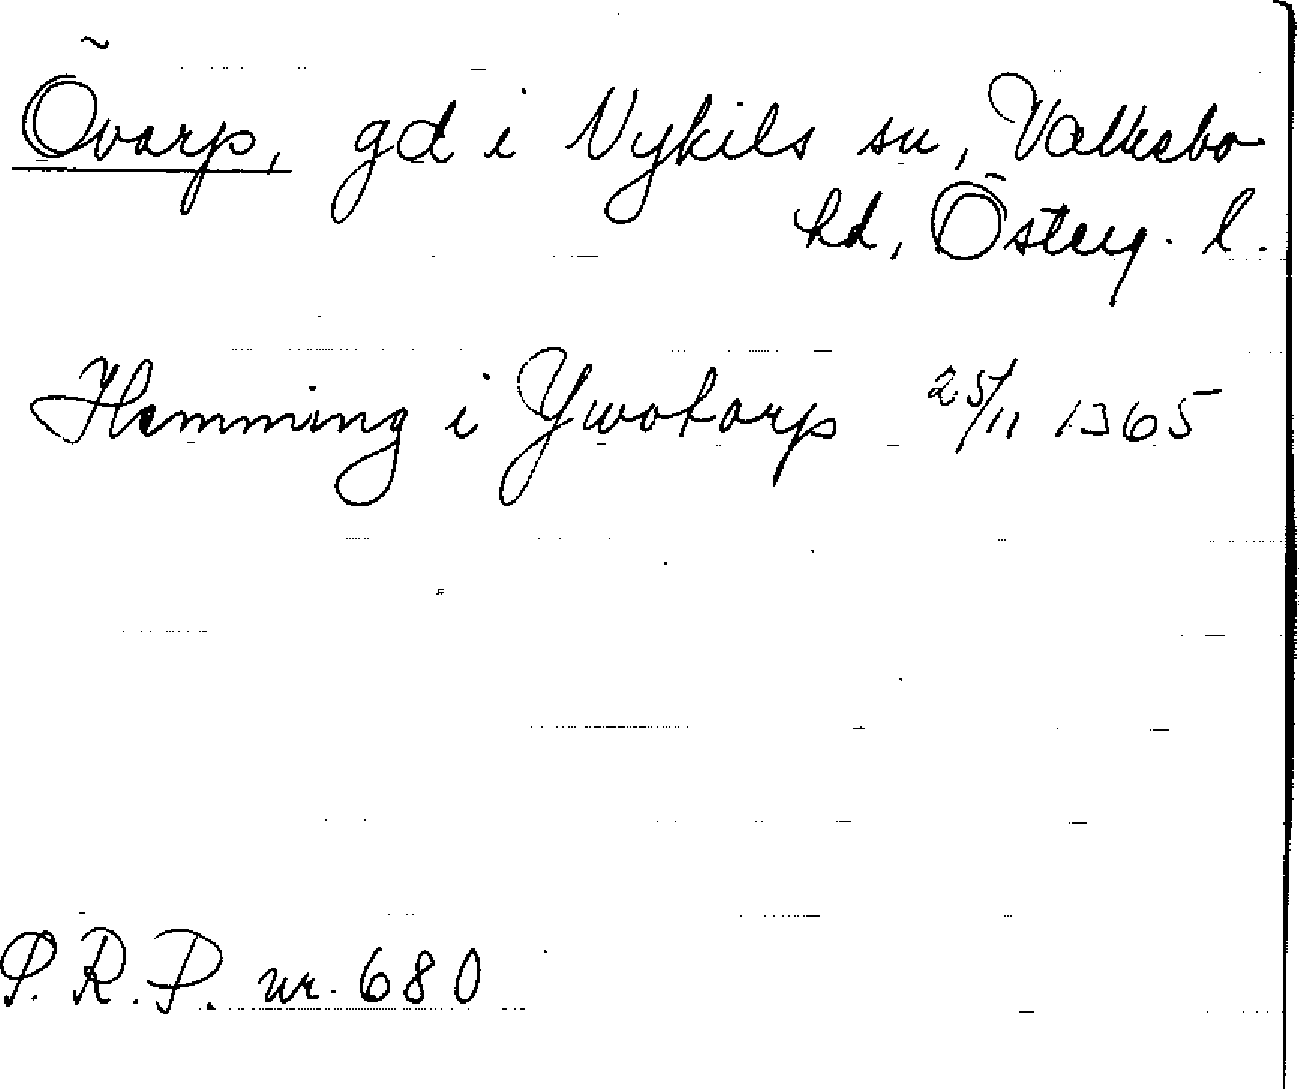 Övarp, gd i Nykils sn, Valkebo
hd, Österg. l.
Hemming i Ywotorp 25/11 1365
P.R.P. nr. 680